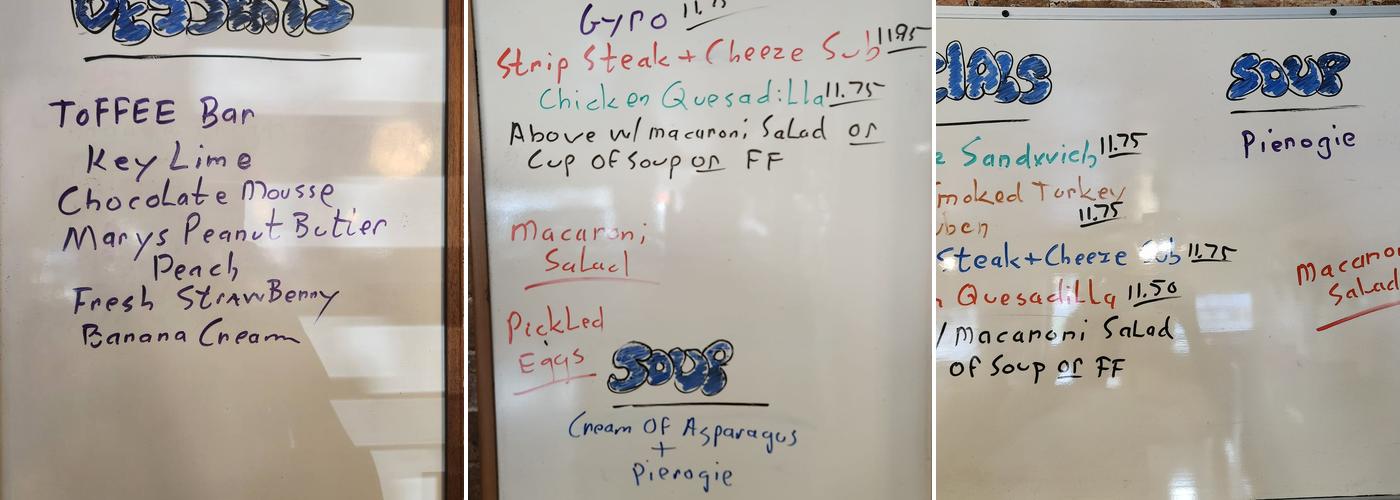 DESSERTS
TOFFEE Bar
Key Lime
Chocolate Mousse
Marys Peanut Butter
Peach
Fresh StrawBerry
Banana Cream
Gyro
Strip Steak + Cheeze Sub 11.95
Chicken Quesadilla 11.75
Above w/ macaroni Salad or
Cup Of Soup or FF
Macaroni
Salad
Pickled
Eggs
SOUP
Cream Of Asparagus
+
Pierogie
CIALS
Sandwich 11.75
moked Turkey
11.75
uben
Steak + Cheeze Sub 11.75
Quesadilla 11.50
/ Macaroni Salad
of Soup or FF
SOUP
Pierogie
Macaro
Salad